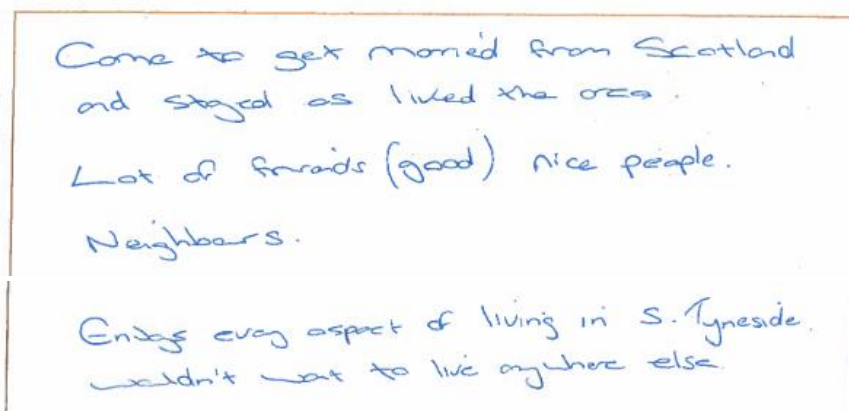 Come to get married from Scotland
and stayed as liked the area.
Lot of friends (good) nice people.
Neighbours.
Enjoys every aspect of living in S. Tyneside.
wouldn't want to live anywhere else.